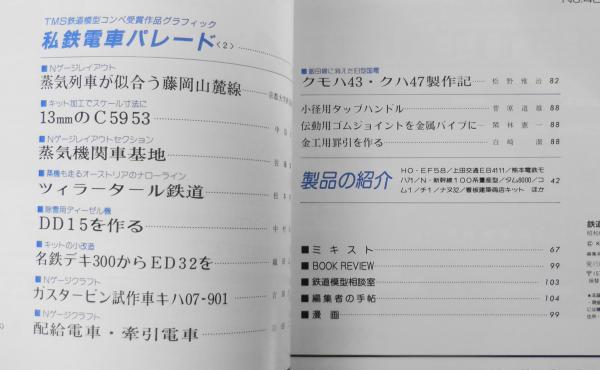 TMS鉄道模型コンペ受賞作品グラフィック
私鉄電車パレード〈2〉
■Nゲージレイアウト
蒸気列車が似合う藤岡山麓線
■キット加工でスケール寸法に
13mmのC5953
■Nゲージレイアウトセクション
蒸気機関車基地
■蒸機も走るオーストリアのナローライン
ツィラータール鉄道
■除雪用ディーゼル機
DD15を作る
■キットの小改造
名鉄デキ300からED32を
■Nゲージクラフト
ガスタービン試作車キハ07-901
■Nゲージクラフト
配給電車・牽引電車
■飯田線に消えた旧型国電
クモハ43・クハ47製作記 松野雅治 82
小径用タップハンドル 菅原道雄 88
伝動用ゴムジョイントを金属パイプに 栗林憲一 88
金工用罫引を作る 白崎 潔 88
製品の紹介
HO・EF58/上田交通EB4111/熊本電鉄モ
ハ71/N・新幹線100系量産型/タム6000/コ
ム1/チ1/ナヌ32/看板建築商店キット ほか
42
■ミキスト 67
■BOOK REVIEW 99
■鉄道模型相談室 103
■編集者の手帖 104
■漫画 99